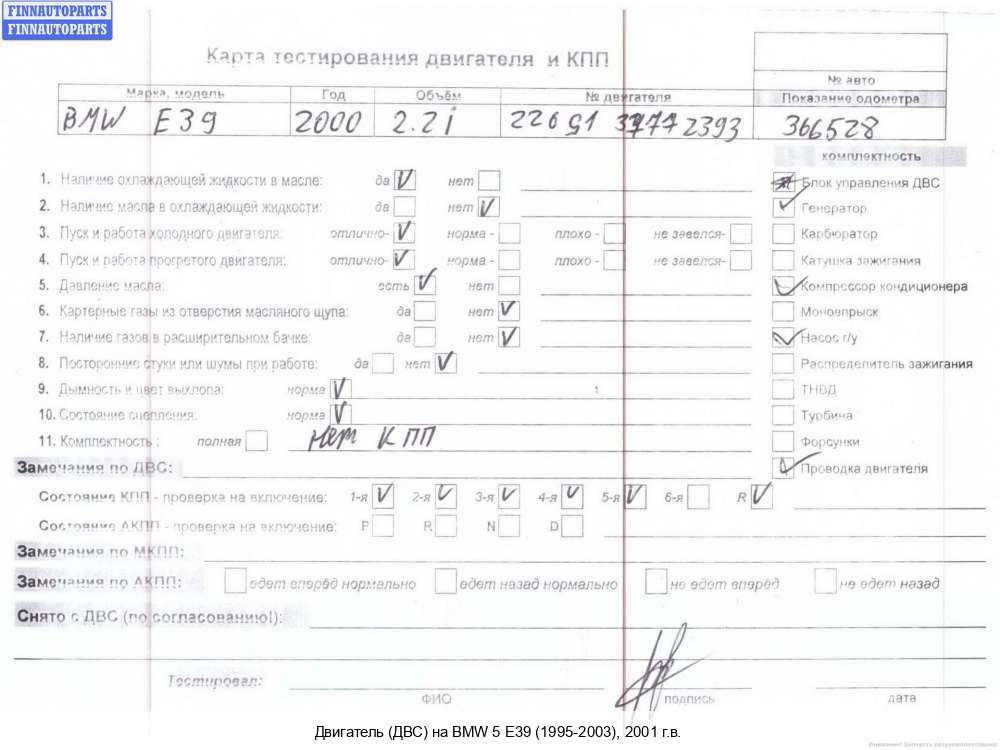 FINNAUTOPARTS
FINNAUTOPARTS
Карта тестирования двигателя и КПП
№ авто
Марка, модель Год Объём № двигателя Показание одометра
BMW E39 2000 2.2i 226S1 3477 2393 366528
комплектность
1. Наличие охлаждающей жидкости в масле: да V нет
Блок управления ДВС
2. Наличие масла в охлаждающей жидкости: да нет V
Генератор
3. Пуск и работа холодного двигателя: отлично- V норма - плохо - не завелся-
Карбюратор
4. Пуск и работа прогретого двигателя: отлично- V норма - плохо - не завелся-
Катушка зажигания
5. Давление масла: есть V нет
Компрессор кондиционера
6. Картерные газы из отверстия масляного щупа: да нет V
Моновпрыск
7. Наличие газов в расширительном бачке: да нет V
Насос г/у
8. Посторонние стуки или шумы при работе: да нет V
Распределитель зажигания
9. Дымность и цвет выхлопа: норма V
ТНВД
10. Состояние сцепления: норма V
Турбина
11. Комплектность : полная нет КПП
Форсунки
Замечания по ДВС:
Проводка двигателя
Состояние КПП - проверка на включение: 1-я V 2-я V 3-я V 4-я V 5-я V 6-я R V
Состояние АКПП - проверка на включение: P R N D
Замечания по МКПП:
Замечания по АКПП: едет вперёд нормально едет назад нормально не едет вперёд не едет назад
Снято с ДВС (по согласованию!):
Тестировал:
ФИО подпись дата
Двигатель (ДВС) на BMW 5 E39 (1995-2003), 2001 г.в.
Внимание! Запчасть разукомплектована!